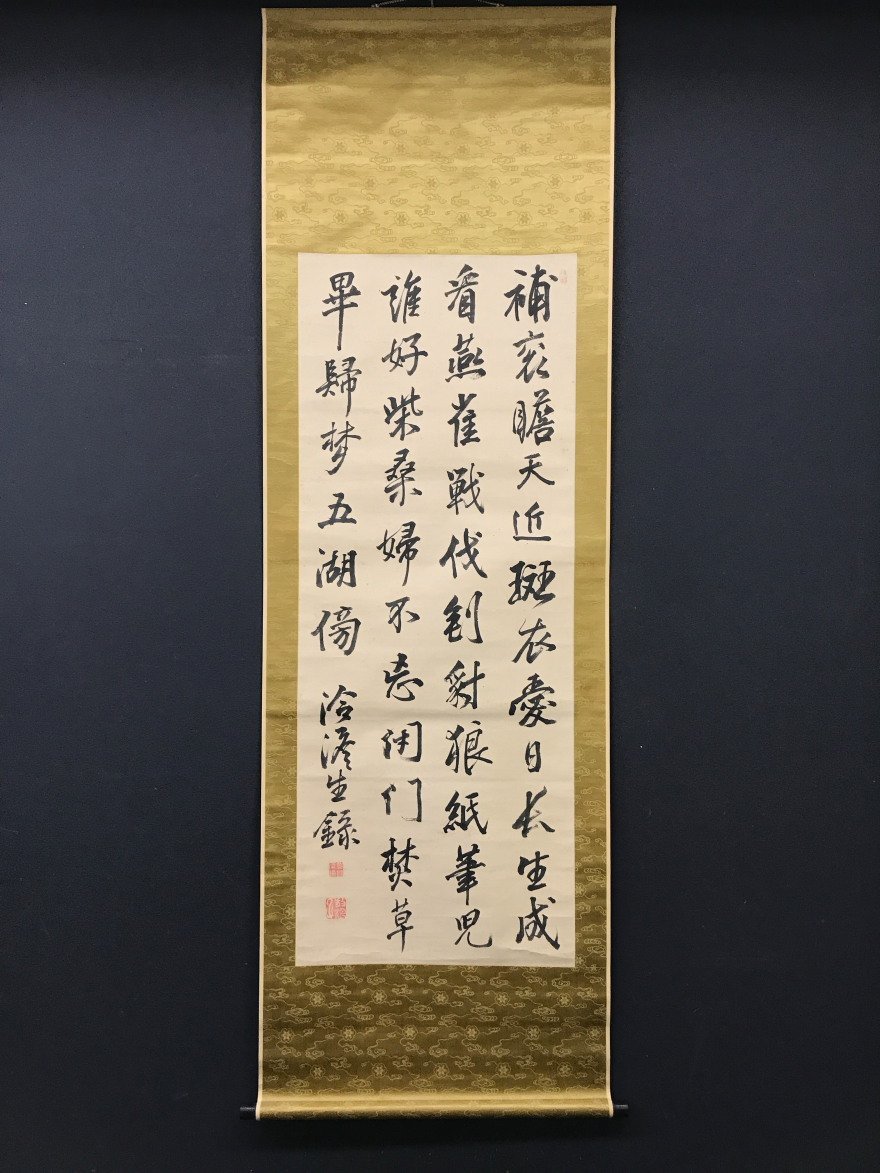 補袞瞻天近斑衣愛日长生成
看燕雀戰伐到豺狼紙筆児
誰好柴桑婦不忘閉门焚草
畢歸梦五湖傍
生錄